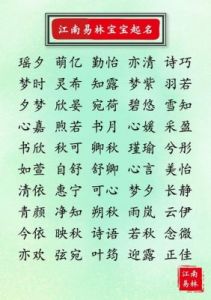 江南易林宝宝起名
瑶夕 萌亿 勤怡 亦清 诗巧
梦时 灵希 知露 梦紫 羽若
夕梦 欣晏 宛荷 碧悠 雪知
心嘉 煦若 书月 心媛 采盈
书欣 秋可 卿秋 瑾瑜 兮彤
如萱 自舒 舒卿 心言 美怡
清依 惠宁 可心 梦夕 长静
青颜 净知 朔秋 雨岚 云伊
今依 映秋 诗语 若秋 念微
亦欢 弦宛 叶筠 迎露 正佳
江南
易林